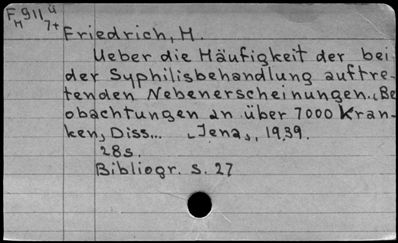 F 911 a
H 7+
Friedrich, H.
Ueber die Häufigkeit der bei
der Syphilisbehandlung auftre-
tenden Nebenerscheinungen. (Be
obachtungen an über 7000 Kran-
ken, Diss... Jena, 1939.
28s.
Bibliogr. s. 27